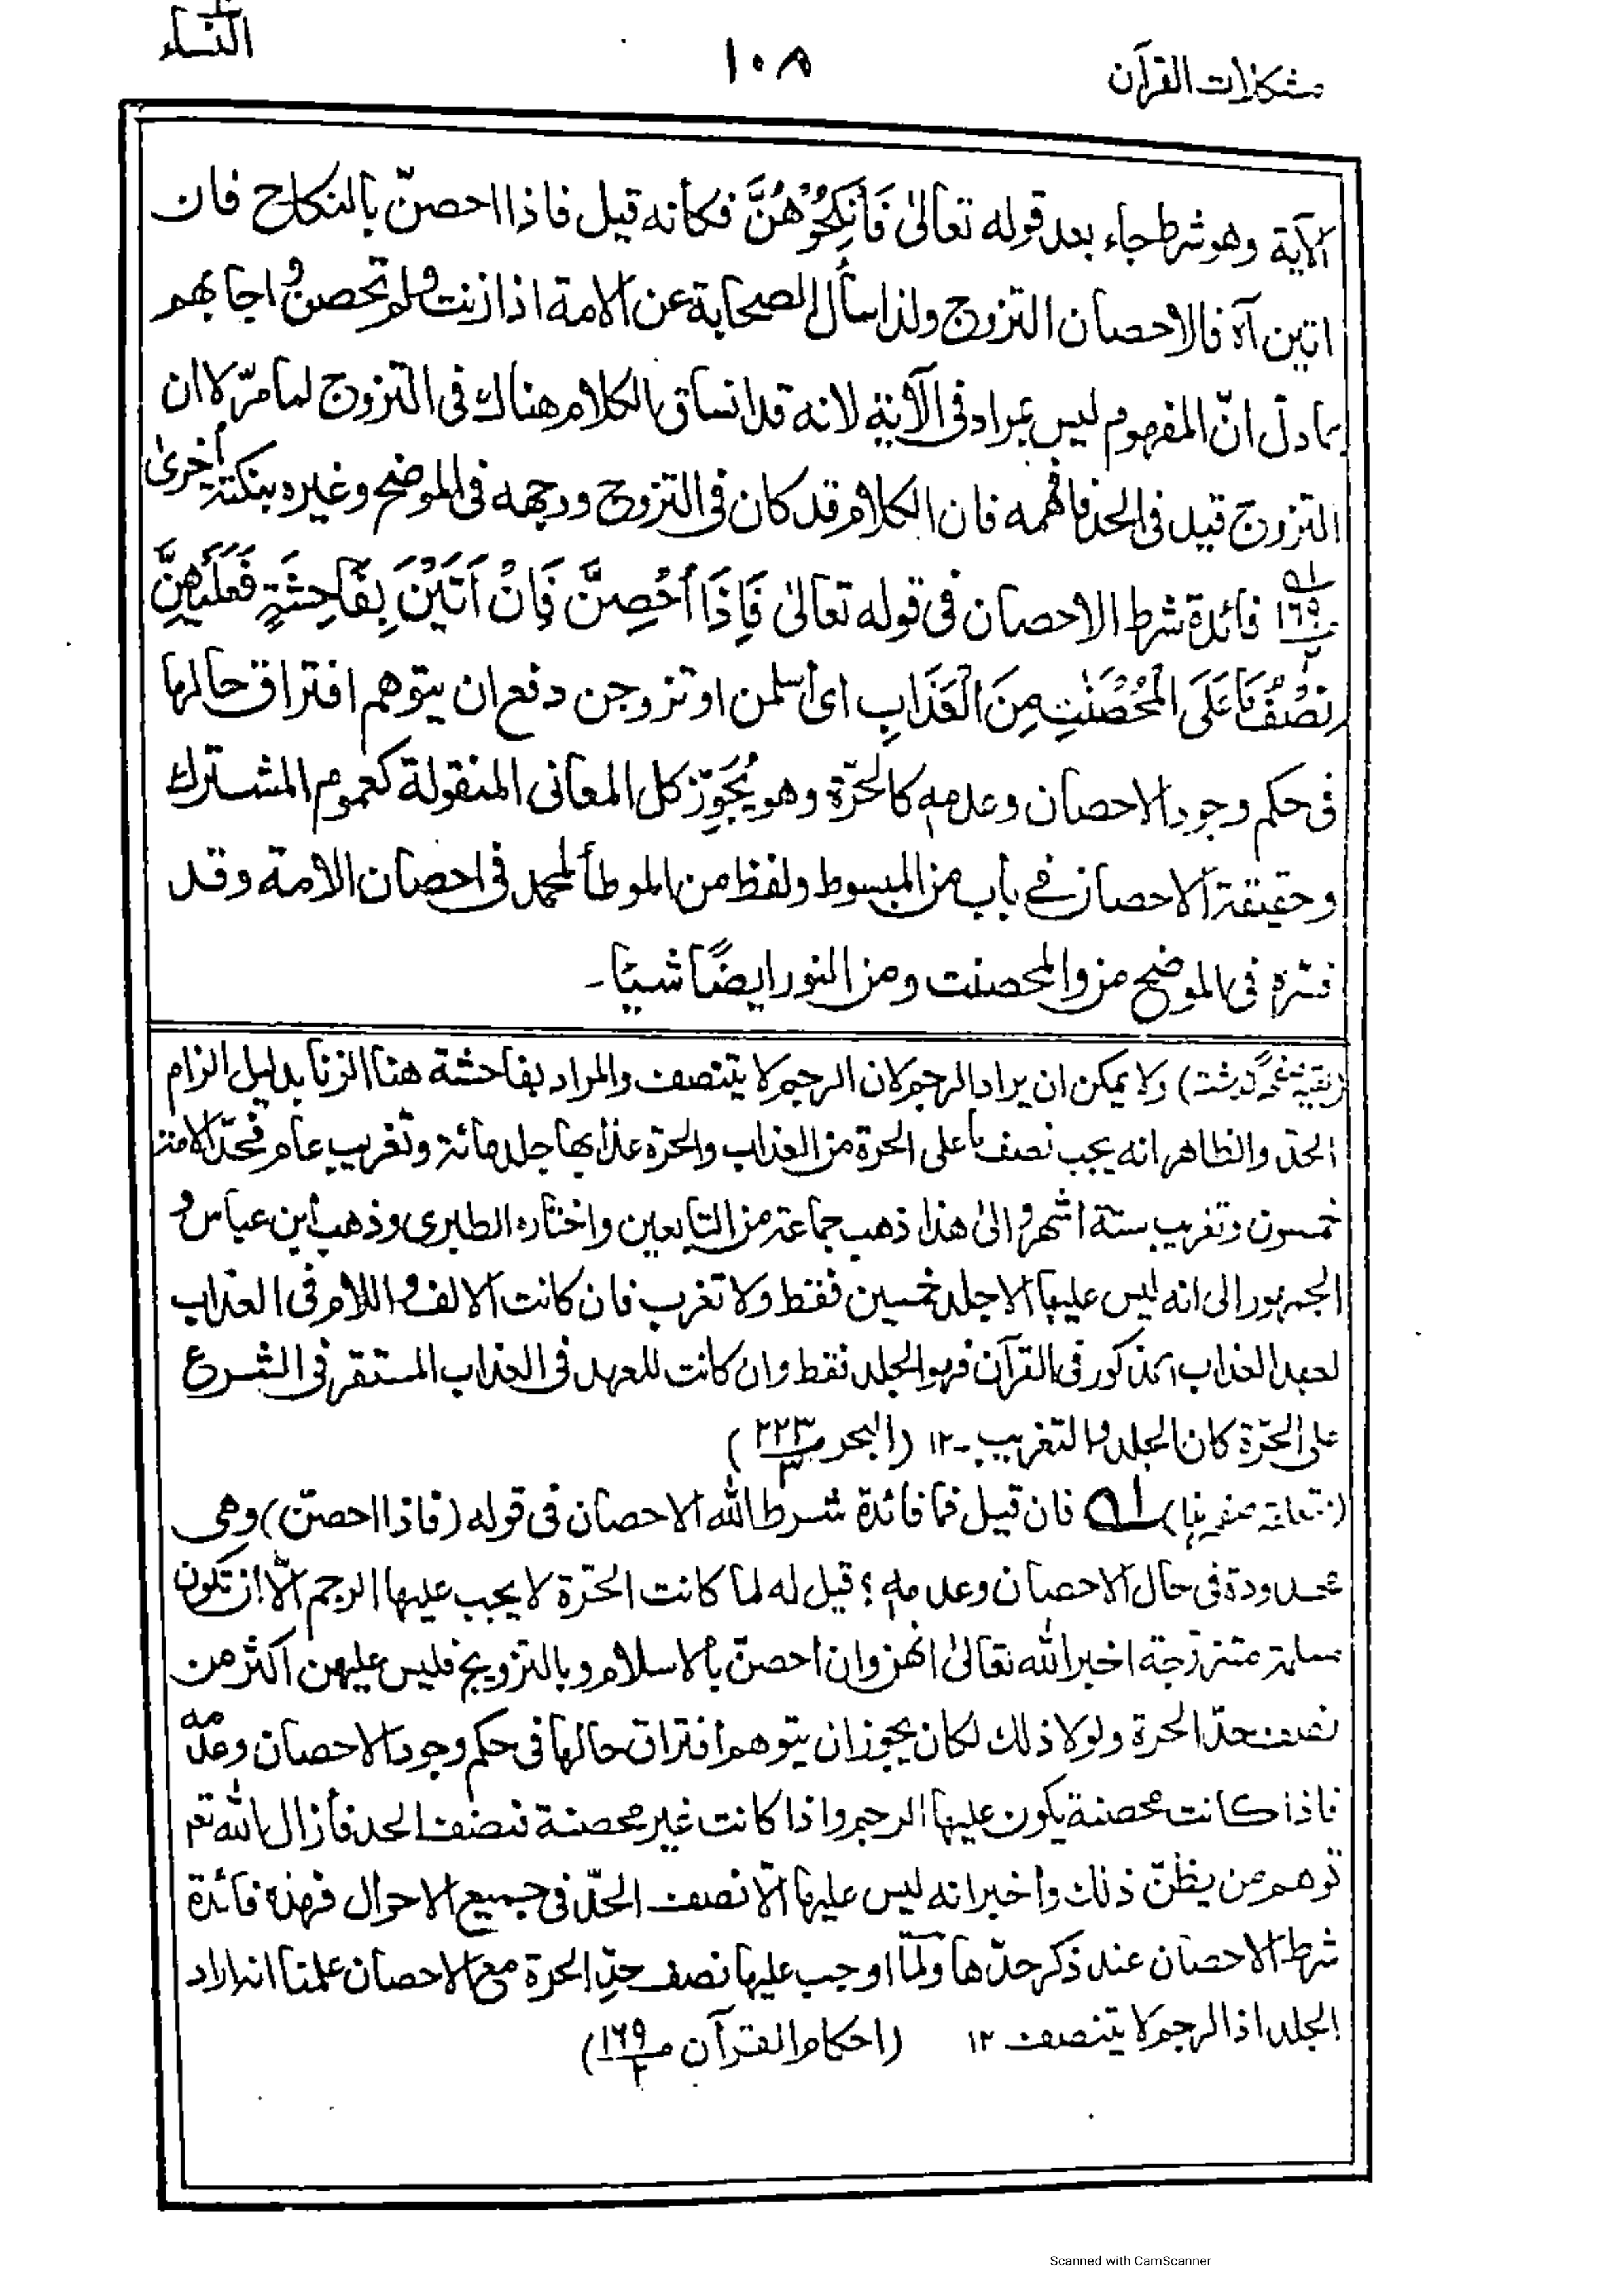 مشكلات القرآن
١٠٨
النساء
الآية وهو شرط جاء بعد قوله تعالىٰ فَانْكِحُوْهُنَّ فكأنه قيل فاذا احصنّ بالنكاح فان
اتين آه فالاحصان التزوج ولذا سأل الصحابة عن الامة اذا زنت ولم تحصن واجابهم
بما دل انّ المفهوم ليس بمراد فى الآية لانه قد انساق الكلام هناك فى التزوج لما مرّ لا ان
التزوج قيد فى الحد فافهمه فان الكلام قد كان فى التزوج ووجهه فى الموضح وغيره بنكتة أخرىٰ
فائدة شرط الاحصان فى قوله تعالىٰ فَاِذَا اُحْصِنَّ فَاِنْ اَتَيْنَ بِفَاحِشَةٍ فَعَلَيْهِنَّ
١٦٩
٢
نِصْفُ مَا عَلَى الْمُحْصَنٰتِ مِنَ الْعَذَابِ اى اسلمن او تزوجن دفع ان يتوهم افتراق حالها
فى حكم وجود الاحصان وعدمه كالحرّة وهو يُجَوِّز كل المعانى المنقولة كعموم المشترك
وحقيقة الاحصان فے باب من المبسوط ولفظ من الموطأ لمحمد فى احصان الامة وقد
فسّره فى الموضح من والمحصنت ومن النور ايضًا شيئا۔
(بقيہ صفحہ گذشتہ) ولا يمكن ان يراد الرجم لان الرجم لا يتنصف والمراد بفاحشة هنا الزنا بدليل الزام
الحدّ والظاهر انه يجب نصف ما على الحرة من العذاب والحرّة عذابها جلد مائة وتغريب عام فحدّ الامة
خمسون وتغريب ستة اشهر والىٰ هذا ذهب جماعة من التابعين واختاره الطبرى وذهب ابن عباس و
الجمهور الى انه ليس عليها الا جلد خمسين فقط ولا تغرب فان كانت الالف واللام فى العذاب
لعهد العذاب المذكور فى القرآن فهو الجلد فقط وان كانت للعهد فى العذاب المستقر فى الشرع
على الحرّة كان الجلد والتغريب۔ ١٢ (البحر ص ٢٢٣
٣)
(متعلقہ صفحہ ہذا) فان قيل فما فائدة شرط الله الاحصان فى قوله (فاذا احصنّ) وهى
محدودة فى حال الاحصان وعدمه؟ قيل له لما كانت الحرّة لا يجب عليها الرجم الّا ان تكون
مسلمة متزوّجة اخبر الله تعالىٰ انهن وان احصنّ بالاسلام وبالتزويج فليس عليهن اكثر من
نصف حدّ الحرة ولولا ذلك لكان يجوز ان يتوهم افتراق حالها فى حكم وجود الاحصان وعدمه
فاذا كانت محصنة يكون عليها الرجم واذا كانت غير محصنة فنصف الحد فأزال الله تعه
توهم من يظنّ ذلك وأخبر انه ليس عليها الّا نصف الحدّ فى جميع الاحوال فهذه فائدة
شرط الاحصان عند ذكر حدّها ولمّا اوجب عليها نصف حدّ الحرة مع الاحصان علمنا انه اراد
الجلد اذ الرجم لا يتنصف ١٢ (احكام القرآن ص ١٦٩
٢)
Scanned with CamScanner